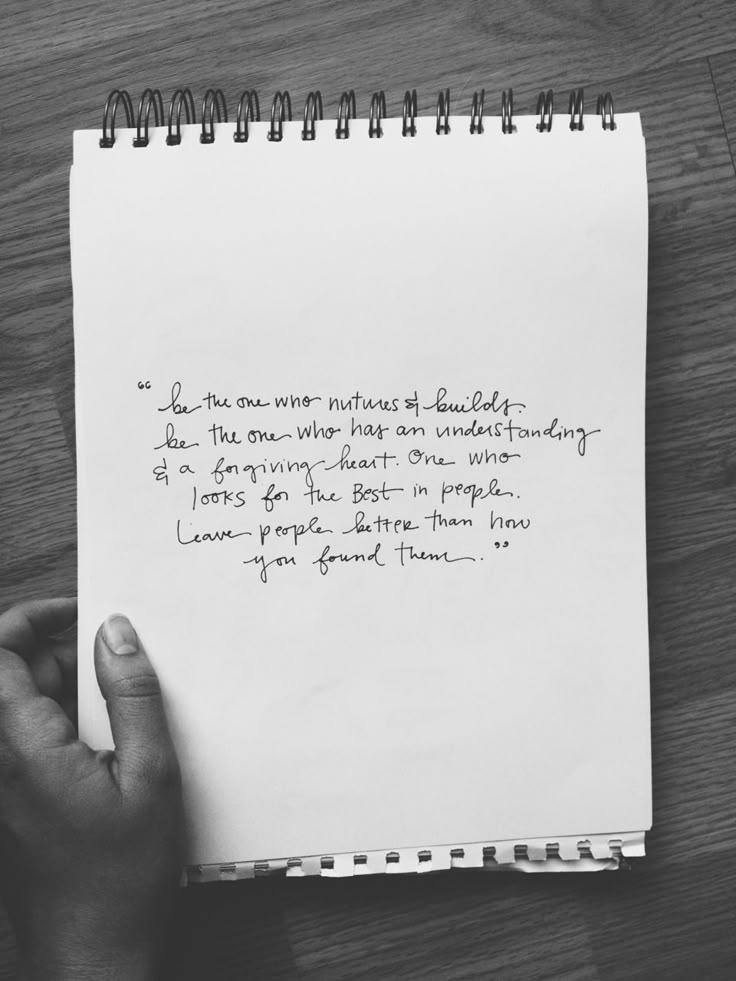 “be the one who nutures & builds.
be the one who has an understanding
& a forgiving heart. One who
looks for the Best in people.
Leave people better than how
you found them.”